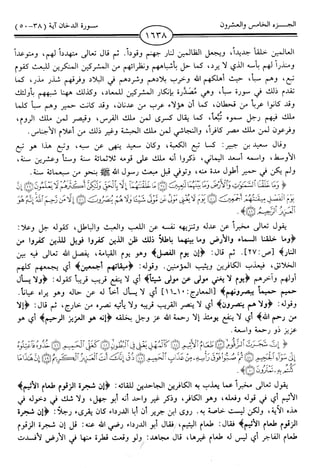 الجزء الخامس والعشرون
١٦٣٨
سورة الدخان آية (٣٨ -٥٠)
العالمين خلقاً جديداً، ويجعل الظالمين لنار جهنم وقوداً. ثم قال تعالى متهدداً لهم، ومتوعداً
ومنذراً لهم بأسه الذي لا يرد، كما حل بأشباههم ونظرائهم من المشركين المنكرين للبعث كقوم
تبع، وهم سبأ، حيث أهلكهم الله وخرب بلادهم وشردهم في البلاد وفرقهم شذر مذر، كما
تقدم ذلك في سورة سبأ، وهي مُصَدَّرة بإنكار المشركين للمعاد، وكذلك ههنا شبههم بأولئك
وقد كانوا عرباً من قحطان، كما أن هؤلاء عرب من عدنان، وقد كانت حمير وهم سبأ كلما
ملك فيهم رجل سموه تُبَّعاً، كما يقال كسرى لمن ملك الفرس، وقيصر لمن ملك الروم،
وفرعون لمن ملك مصر كافراً، والنجاشي لمن ملك الحبشة وغير ذلك من أعلام الأجناس.
وقال سعيد بن جبير: كسا تبع الكعبة، وكان سعيد ينهى عن سبه، وتبع هذا هو تبع
الأوسط، واسمه أسعد اليماني، ذكروا أنه ملك على قومه ثلاثمائة سنة وستاً وعشرين سنة،
ولم يكن في حمير أطول مدة منه، وتوفي قبل مبعث رسول الله ﷺ بنحو من سبعمائة سنة.
وَمَا خَلَقْنَا السَّمَاوَاتِ وَالْأَرْضَ وَمَا بَيْنَهُمَا لَاعِبِينَ مَا خَلَقْنَاهُمَا إِلَّا بِالْحَقِّ وَلَٰكِنَّ أَكْثَرَهُمْ لَا يَعْلَمُونَ إِنَّ
يَوْمَ الْفَصْلِ مِيقَاتُهُمْ أَجْمَعِينَ يَوْمَ لَا يُغْنِي مَوْلًى عَن مَّوْلًى شَيْئًا وَلَا هُمْ يُنصَرُونَ إِلَّا مَن رَّحِمَ اللَّهُ إِنَّهُ هُوَ
الْعَزِيزُ الرَّحِيمُ
يقول تعالى مخبراً عن عدله وتنزيهه نفسه عن اللعب والعبث والباطل، كقوله جل وعلا:
﴿وما خلقنا السماء والأرض وما بينهما باطلاً ذلك ظن الذين كفروا فويل للذين كفروا من
النار﴾ [ص: ٢٧]. ثم قال: ﴿إن يوم الفصل﴾ وهو يوم القيامة، يفصل الله تعالى فيه بين
الخلائق، فيعذب الكافرين ويثيب المؤمنين. وقوله: ﴿ميقاتهم أجمعين﴾ أي يجمعهم كلهم
أولهم وآخرهم ﴿يوم لا يغني مولى عن مولى شيئاً﴾ أي لا ينفع قريب قريباً كقوله: ﴿ولا يسأل
حميم حميماً يبصرونهم﴾ [المعارج: ١٠-١١] أي لا يسأل أخاً له عن حاله وهو يراه عياناً.
وقوله: ﴿ولا هم ينصرون﴾ أي لا ينصر القريب قريبه ولا يأتيه نصره من خارج، ثم قال: ﴿إلا
من رحم الله﴾ أي لا ينفع يومئذ إلا رحمة الله عز وجل بخلقه ﴿إنه هو العزيز الرحيم﴾ أي هو
عزيز ذو رحمة واسعة.
يقول تعالى مخبراً عما يعذب به الكافرين الجاحدين للقائه: ﴿إن شجرة الزقوم طعام الأثيم﴾
الأثيم أي في قوله وفعله، وهو الكافر، وذكر غير واحد أنه أبو جهل، ولا شك في دخوله في
هذه الآية، ولكن ليست خاصة به. روى ابن جرير أن أبا الدرداء كان يقرىء رجلاً: ﴿إن شجرة
الزقوم طعام الأثيم﴾ فقال: طعام اليتيم، فقال أبو الدرداء رضي الله عنه: قل إن شجرة الزقوم
طعام الفاجر أي ليس له طعام غيرها، قال مجاهد: ولو وقعت قطرة منها في الأرض لأفسدت